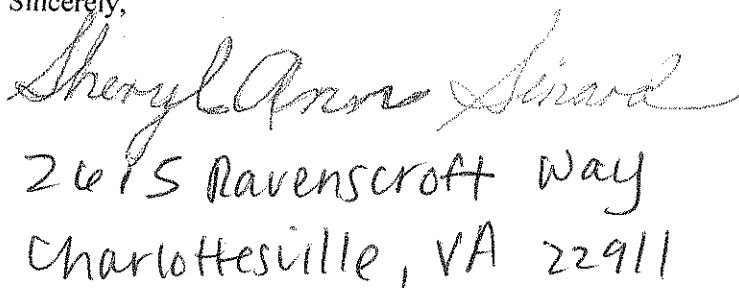 Sincerely,
Sheryl Ann Sinard
2615 Ravenscroft Way
Charlottesville, VA 22911